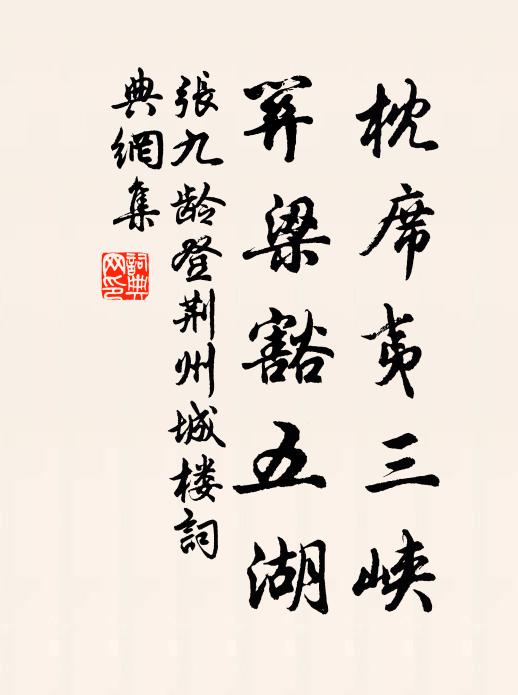 枕席夷三峡
关梁豁五湖
張九龄登荆州城楼詞
典網集
詞典
网印